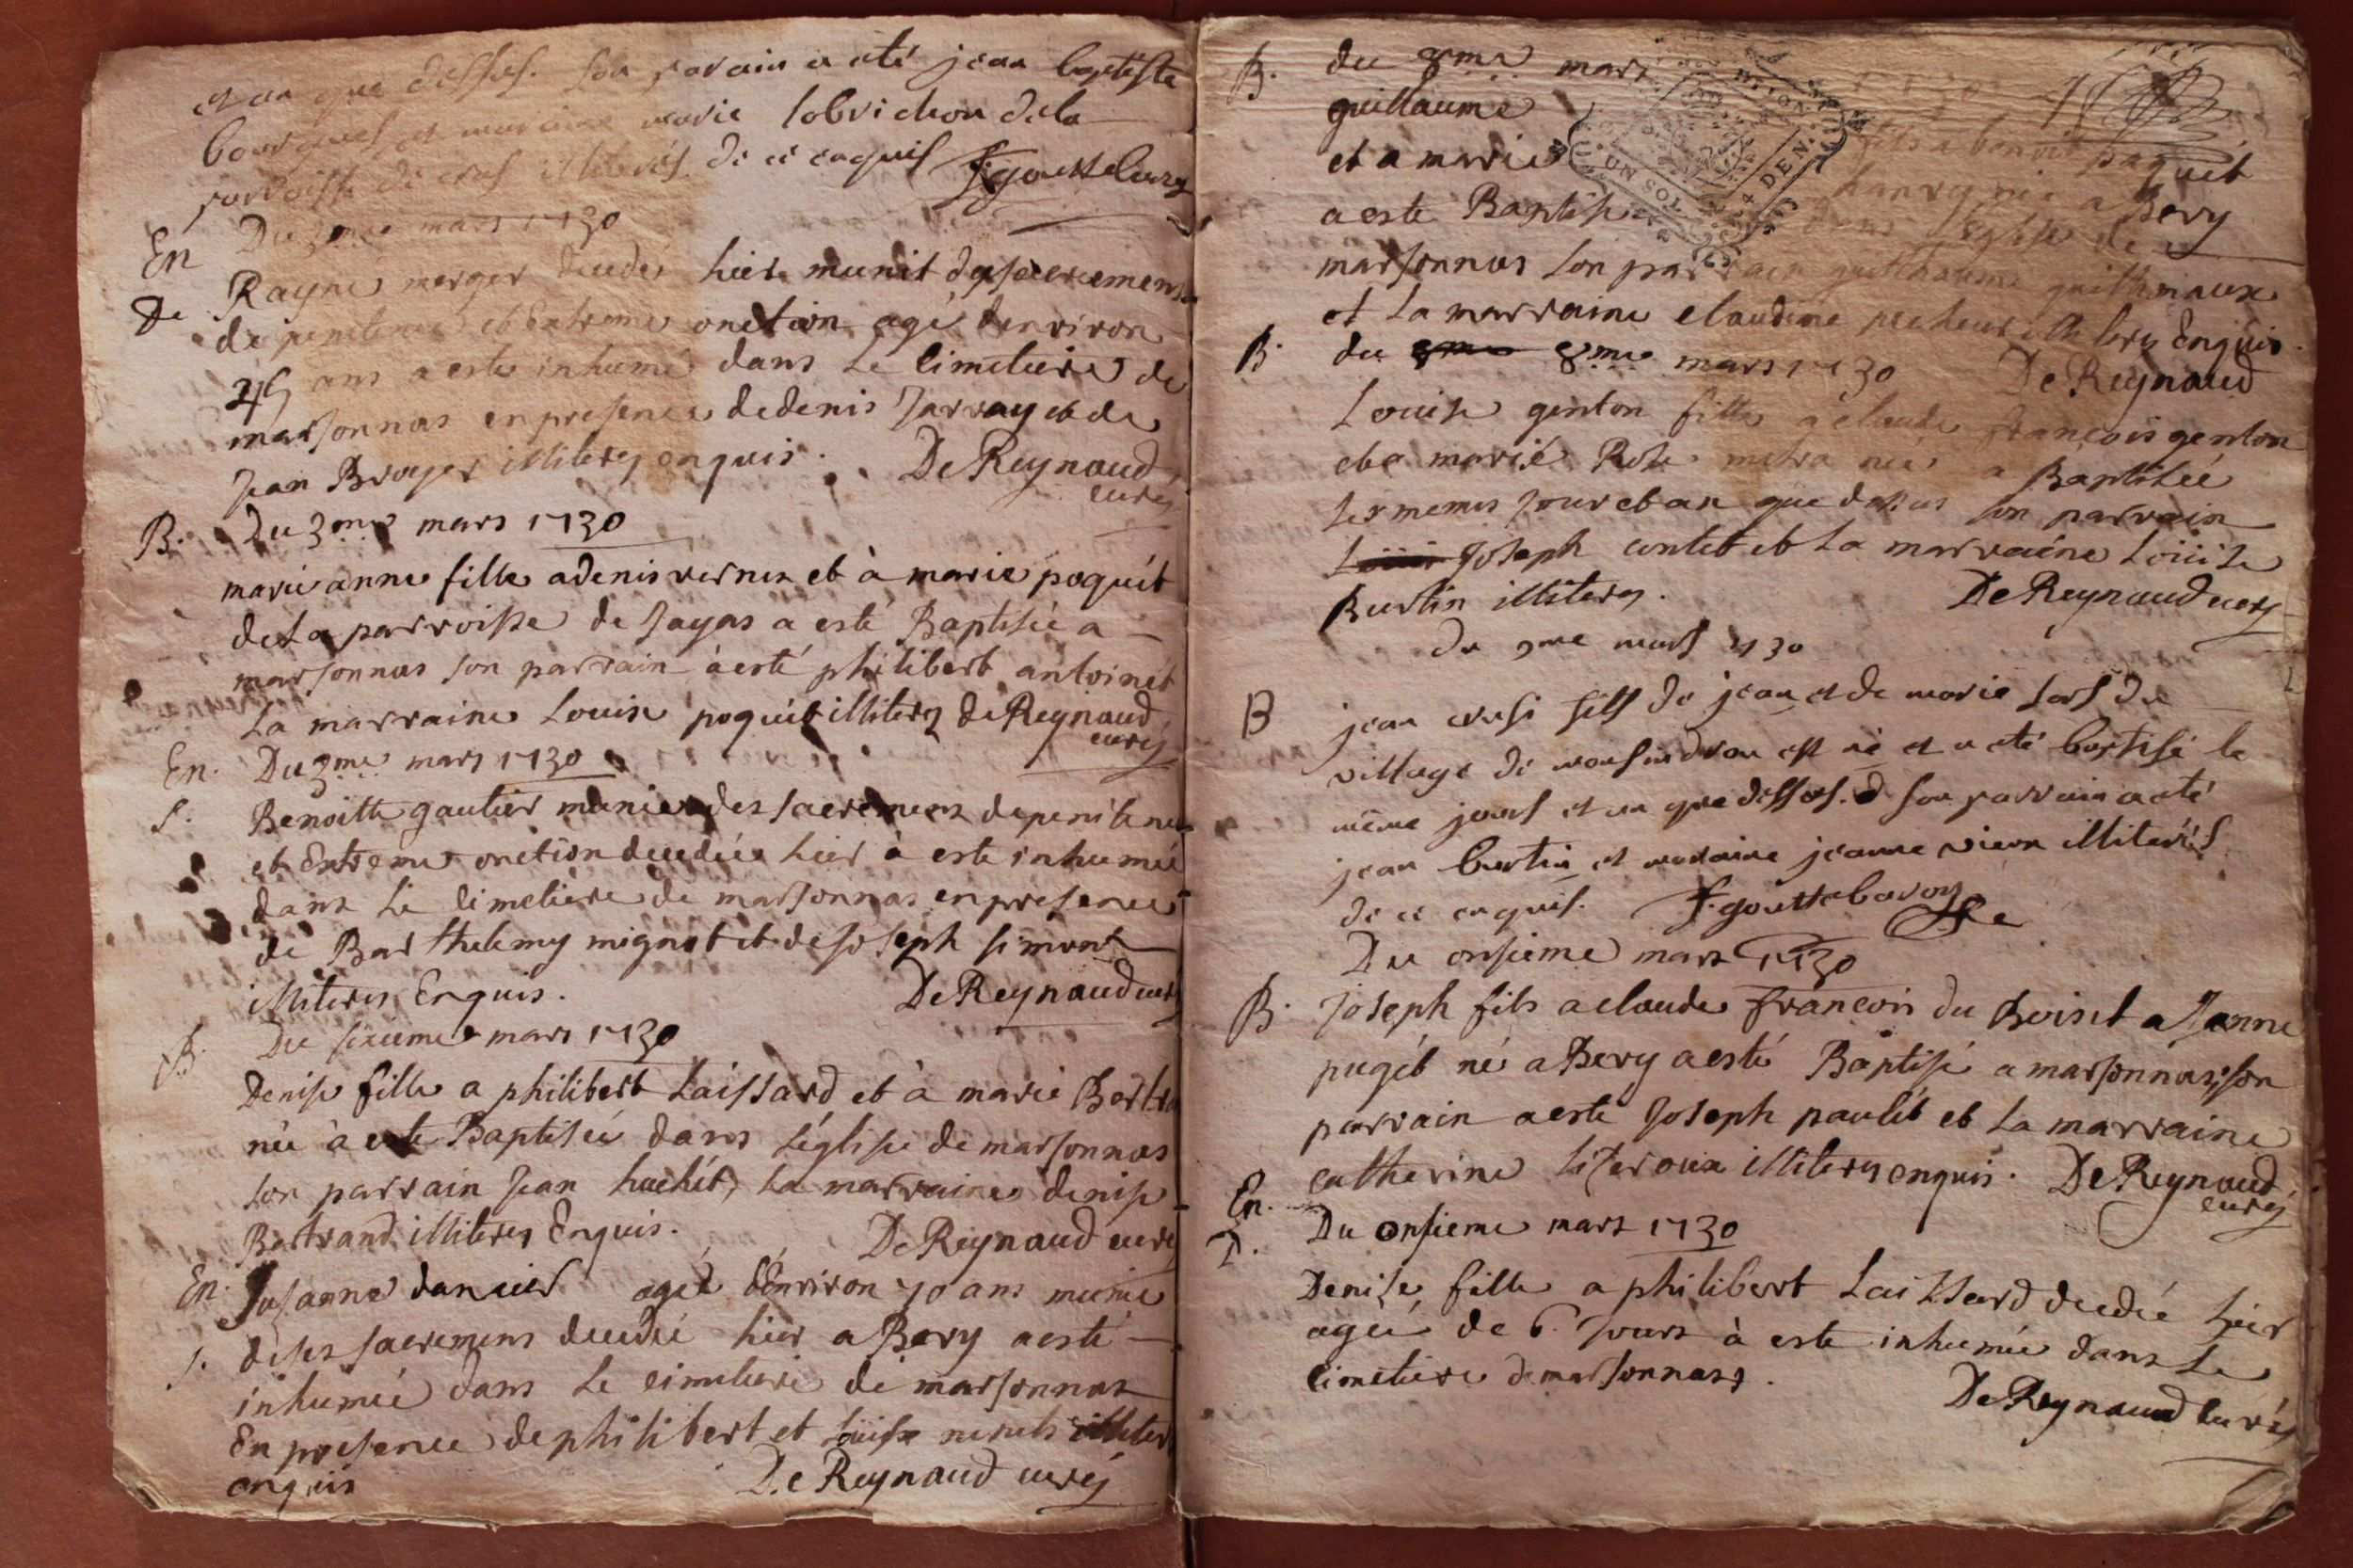 et an que dessus. son parain a eté jean baptiste
et maraine marie lobrichon dela
parroisse de illiterés de ce enquis
En Du 3me mars 1730
De Rayne merger decedé hier munit de sacremens
de penitence et Extreme onction agé denviron
45 ans a este inhumé dans le Cimetiere de
marsonnas en presence de denis Jarray et de
Jean Broyer illiteres enquis. De Reynaud
curé
B. Du 3me mars 1730
marie anne fille a denis vernes et à marie poquét
de La parroisse de Jayas a esté Baptisée a
marsonnas son parrain à esté philibert antoinét
La marraine Louise poquét illiteres De Reynaud
curé
En. Du 3me mars 1730
S. Benoitte gautier munie des sacremens de penitence
et Extreme onction decedée hier à este inhumée
dans le Cimetiere de marsonnas en presence
de Barthelemy mignot et de Joseph simont
illiteres Enquis. De Reynaud curé
B. Du sixieme mars 1730
Denise fille a philibert Laissard et à marie
née à este Baptisée dans Léglise de marsonnas
son parrain Jean huchét, La marraine denise
Bertrand illiteres Enquis. De Reynaud curé
En. Susanne dancier agée dEnviron 70 ans munie
S. de ses sacremens decedée hier a Bery a esté
inhumée dans Le cimetiere de marsonnas
En presence de philibert et Louise illiteres
enquis De Reynaud curé
B. du 8me mars
guillaume fils a benoit paquét
et a marie a Bery
a este Baptisé dans Léglise de
marsonnas son parrain guillaume guillemaux
et La marraine claudine illiteres Enquis.
B. du 8me mars 1730 De Reynaud
Louise genton fille a claude françois genton
et a marie Rose née a Baptisée
les memes Jour et an que dessus son parrain
Joseph contet et La marraine Loüise
Burtin illiteres. De Reynaud curé
du 9me mars 1730
B jean fils de jean et de marie du
village de est né et a eté baptisé le
même jours et an que dessus. son parrain a eté
jean burtin et maraine jeanne illiterés
de ce enquis.
Du onsieme mars 1730
B. Joseph fils a claude françois du Boiset a Janne
pugét né a Bery a esté Baptisé a marsonnas, son
parrain a esté Joseph paulét et La marraine
catherine illiteres enquis. De Reynaud
curé
En. Du onsieme mars 1730
Denise fille a philibert Laissard decedée hier
agée de 6. Jours à este inhumée dans Le
Cimetiere de marsonnas. De Reynaud curé
UN SOL
4 DEN.